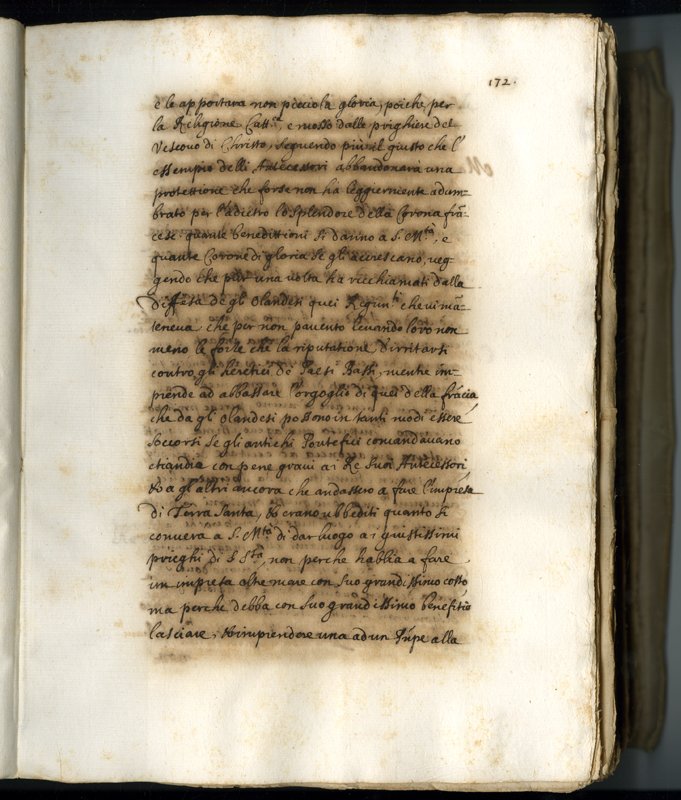 172.
e le apportara non picciola gloria, poiche per
la Religione Catt.ca e mosso dalle prighiere del
Vescovo di Christo, seguendo più il giusto che l'
essempio delli Antecessori abbandonarà una
protettione che forse non ha leggiermente adum-
brato per l'adietro lo splendore della Corona frā-
cese: quante benedittioni si danno a S. M.tà, e
quante Corone di gloria se gli accrescano, veg-
gendo che pur una volta ha richiamati dalla
diffesa degl'Olandesi quei che vi mā-
teneva che per non pavento levando loro non
meno le forze che la riputatione d'irritarsi
contro gli heretici de Paesi Bassi, mentre im-
prende ad abbassare l'orgoglio di quei della frācia
che da gl'Olandesi possono in tanti modi essere
soccorsi se gli antichi Pontefici comandavano
etiandio con pene gravi a i Re suoi Antecessori
& a gl'altri ancora che andassero a fare l'impresa
di Terra Santa, & erano ubbediti quanto si
converà a S. M.tà di dar luogo a i giustissimi
prieghi di S. S.tà, non perche habbia a fare
un impresa oltre mare con suo grandissimo costo
ma perche debba con suo grandissimo benefitio
lasciare, & imprendere una ad un Tn̄pe alla